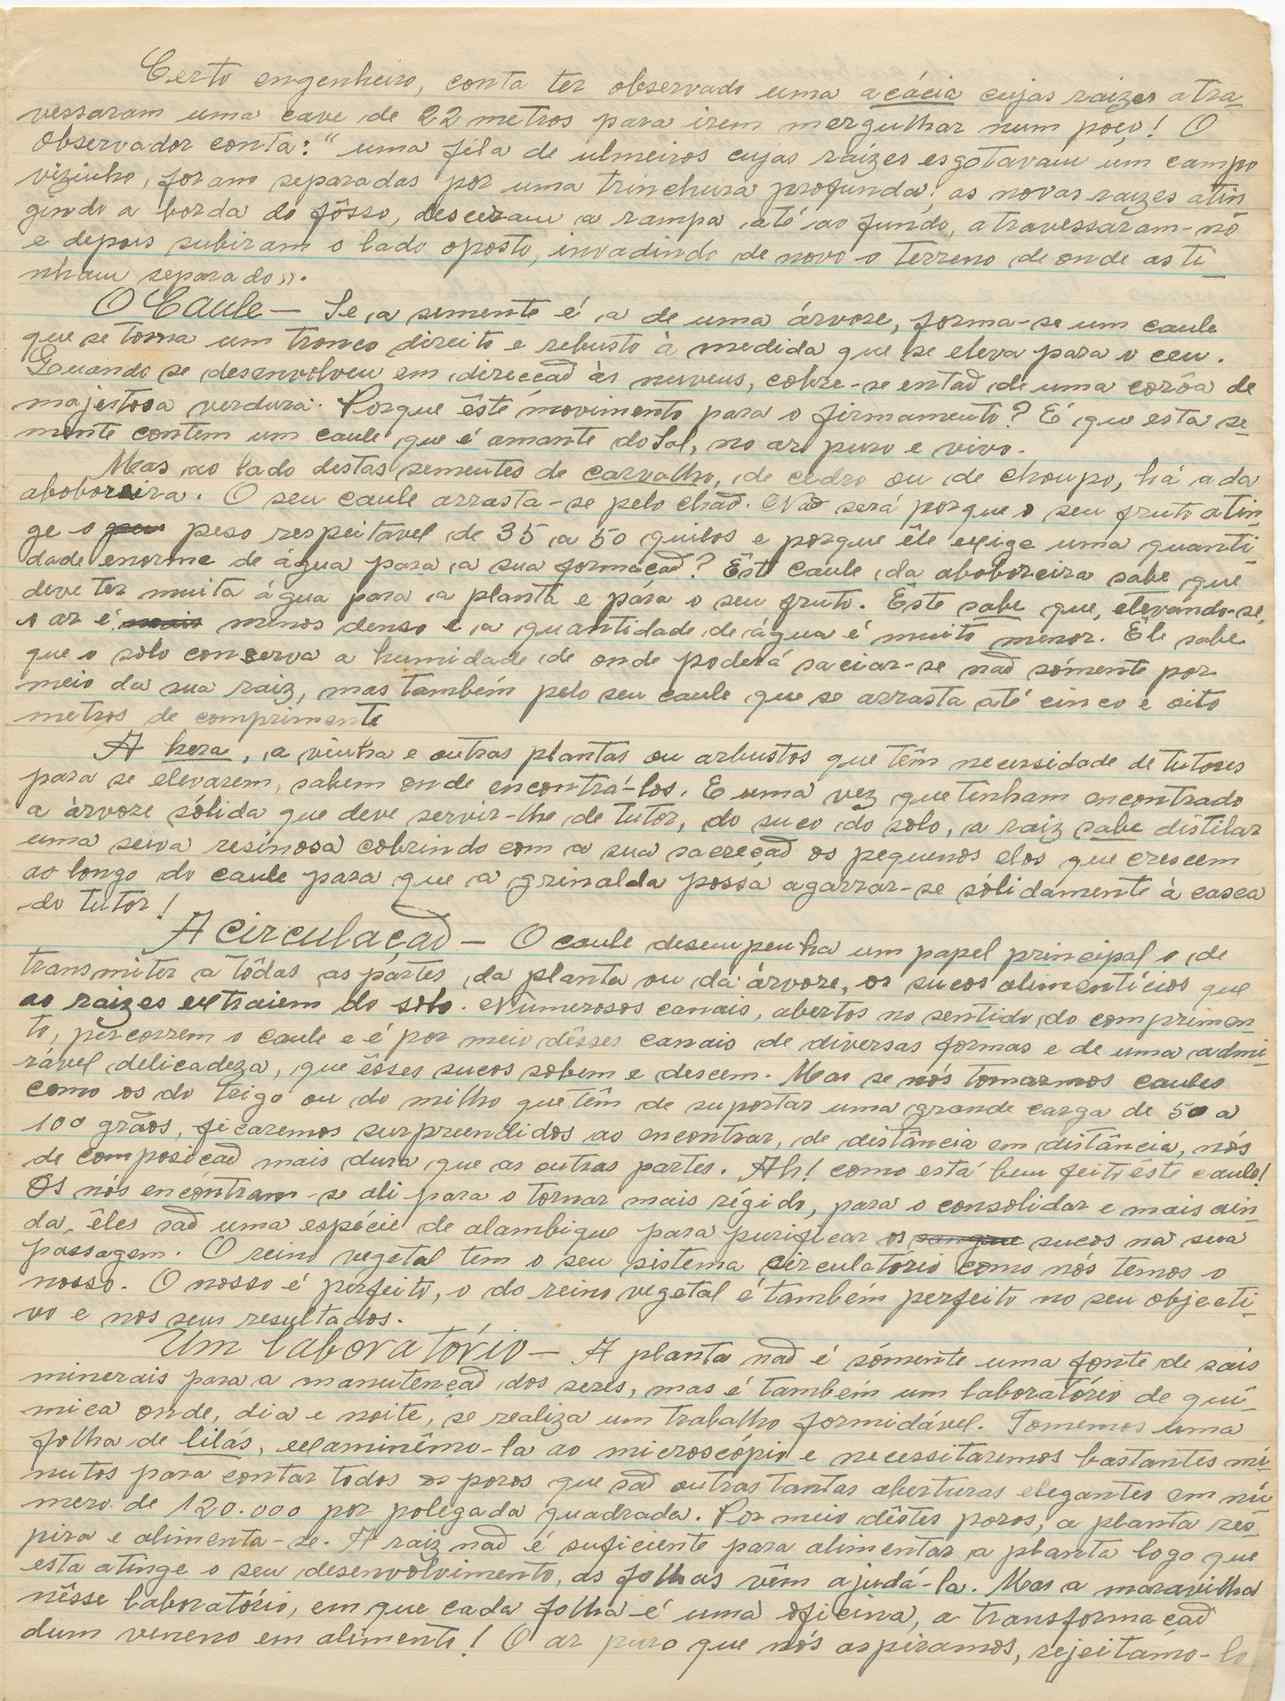 Certo engenheiro, conta ter observado uma acácia cujas raizes atra-
vessaram uma cave de 22 metros para irem mergulhar num poço! O
observador conta: "uma fila de ulmeiros cujas raízes esgotavam um campo
vizinho, foram separadas por uma trinchura profunda; as novas raizes atin
gindo a borda do fôsso, desceram a rampa até ao fundo, atravessaram-no
e depois subiram o lado oposto, invadindo de novo o terreno de onde as ti-
nham separado".
O Caule - Se a semente é a de uma árvore, forma-se um caule
que se torna um tronco direito e rebusto à medida que se eleva para o ceu.
Quando se desenvolveu em direcção às nuvens, cobre-se então de uma corôa de
majestosa verdura. Porque êste movimento para o firmamento? É que esta se-
mente contem um caule que é amante do Sol, no ar puro e vivo.
Mas ao lado destas sementes de carvalho, de cedro ou de choupo, há a da
aboboreira. O seu caule arrasta-se pelo chão. Não será porque o seu fruto atin
ge o peso respeitavel de 35 a 50 quilos e porque êle exige uma quanti
dade enorme de água para a sua formação? Êste caule da aboboreira sabe que
deve ter muita água para a planta e pára o seu fruto. Êste sabe que, elevando-se,
o ar é mais menos denso e a quantidade de água é muito menor. Êle sabe
que o solo conserva a humidade de onde poderá saciar-se não sómente por
meio da sua raiz, mas também pelo seu caule que se arrasta até cinco e oito
metros de comprimento
A hera, a vinha e outras plantas ou arbustos que têm necessidade de tutores
para se elevarem, sabem onde encontrá-los. E uma vez que tenham encontrado
a àrvore sólida que deve servir-lhe de tutor, do suco do solo, a raiz sabe distilar
uma seiva resinosa cobrindo com a sua sacreção os pequenos elos que crescem
ao longo do caule para que a grinalda possa agarrar-se sólidamente à casca
do tutor!
A circulação - O caule desempenha um papel principal o de
transmiter a tôdas as pártes da planta ou da árvore, os sucos alimentícios que
as raizes extraiem do solo. Numerosos canais, abertos no sentido do comprimen-
to, percorrem o caule e é por meio dêsses canais de diversas formas e de uma admi-
rável delicadeza, que êsses sucos sobem e descem. Mas se nós tomarmos caules
como os do trigo ou do milho que têm de suportar uma grande carga de 50 a
100 grãos, ficaremos surpreendidos ao encontrar, de distância em distância, nós
de composição mais dura que as outras partes. Ah! como está bem feito este caule!
Os nós encontram-se ali para o tornar mais rígido, para o consolidar e mais ain-
da, êles são uma espécie de alambique para purificar os sangue sucos na sua
passagem. O reino vegetal tem o seu sistema circulatório como nós temos o
nosso. O nosso é perfeito, o do reino vegetal é também perfeito no seu objecti-
vo e nos seus resultados.
Um laboratório - A planta não é sómente uma fonte de sais
minerais para a manutenção dos seres, mas é também um laboratório de quí-
mica onde, dia e noite, se realiza um trabalho formidável. Tomemos uma
folha de lilás, examinêmo-la ao microscópio e necessitaremos bastantes mi-
nutos para contar todos os poros que são outras tantas aberturas elegantes em nú
mero de 120.000 por polegada quadrada. Por meio dêstes poros, a planta res-
pira e alimenta-se. A raiz não é suficiente para alimentar a planta logo que
esta atinge o seu desenvolvimento, as folhas vêm ajudá-la. Mas a maravilha
nêsse laboratório, em que cada folha é uma oficina, a transformação
dum veneno em alimento! O ar puro que nós aspiramos, rejeitamo-lo